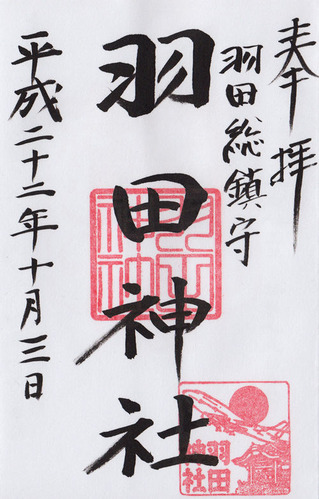 奉拝
羽田総鎮守
羽田神社
平成二十二年十月三日
羽田神社
羽田
神社